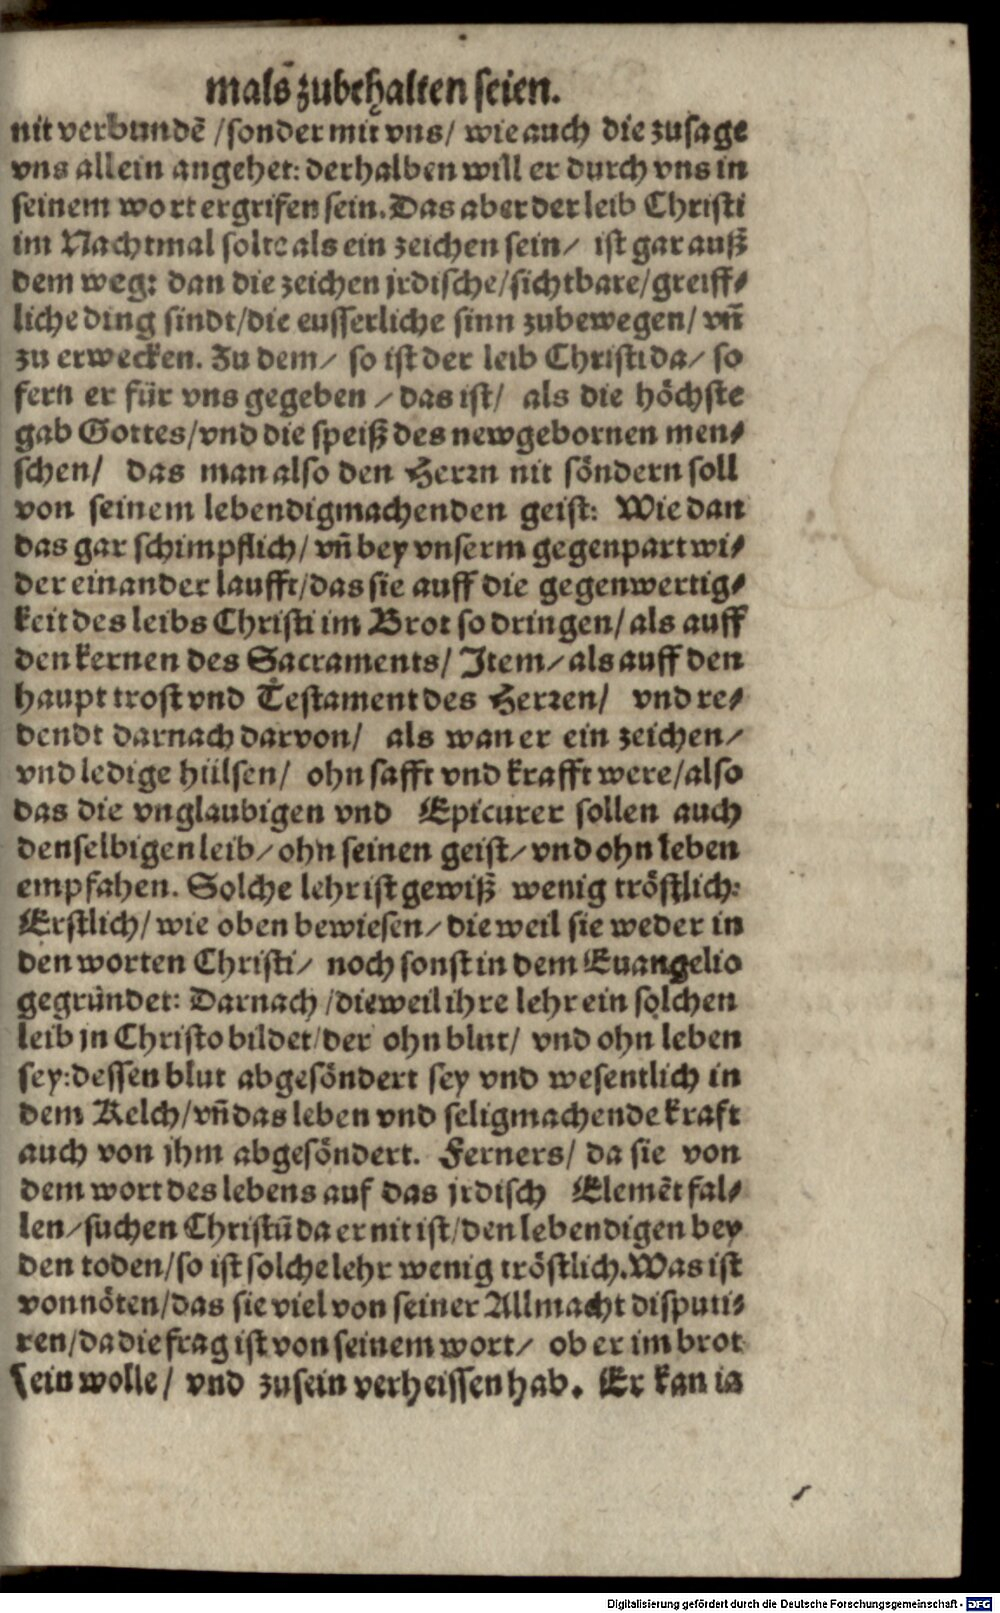 mals zubehalten seien.
nit verbundē / sonder mit vns / wie auch die zusage
vns allein angehet: derhalben will er durch vns in
seinem wort ergrifen sein. Das aber der leib Christi
im Nachtmal solte als ein zeichen sein / ist gar auß
dem weg: dan die zeichen jrdische / sichtbare / greiff⸗
liche ding sindt / die eusserliche sinn zubewegen / vn̄
zu erwecken. Zu dem / so ist der leib Christi da / so
fern er für vns gegeben / das ist / als die höchste
gab Gottes / vnd die speiß des newgebornen men⸗
schen / das man also den Herrn nit söndern soll
von seinem lebendigmachenden geist: Wie dan
das gar schimpflich / vn̄ bey vnserm gegenpart wi⸗
der einander laufft / das sie auff die gegenwertig⸗
keit des leibs Christi im Brot so dringen / als auff
den kernen des Sacraments / Item / als auff den
haupt trost vnd Testament des Herren / vnd re⸗
dendt darnach darvon / als wan er ein zeichen /
vnd ledige hülsen / ohn safft vnd krafft were / also
das die vnglaubigen vnd Epicurer sollen auch
denselbigen leib / ohn seinen geist / vnd ohn leben
empfahen. Solche lehr ist gewiß wenig tröstlich:
Erstlich / wie oben bewiesen / die weil sie weder in
den worten Christi / noch sonst in dem Euangelio
gegründet: Darnach / dieweil ihre lehr ein solchen
leib in Christo bildet / der ohn blut / vnd ohn leben
sey: dessen blut abgesöndert sey vnd wesentlich in
dem Kelch / vn̄ das leben vnd seligmachende kraft
auch von jhm abgesöndert. Ferners / da sie von
dem wort des lebens auf das jrdisch Elemēt fal⸗
len / suchen Christū da er nit ist / den lebendigen bey
den toden / so ist solche lehr wenig tröstlich. Was ist
vonnöten / das sie viel von seiner Allmacht disputi⸗
ren / da die frag ist von seinem wort / ob er im brot
sein wolle / vnd zusein verheissen hab. Er kan ia
Digitalisierung gefördert durch die Deutsche Forschungsgemeinschaft - DFG